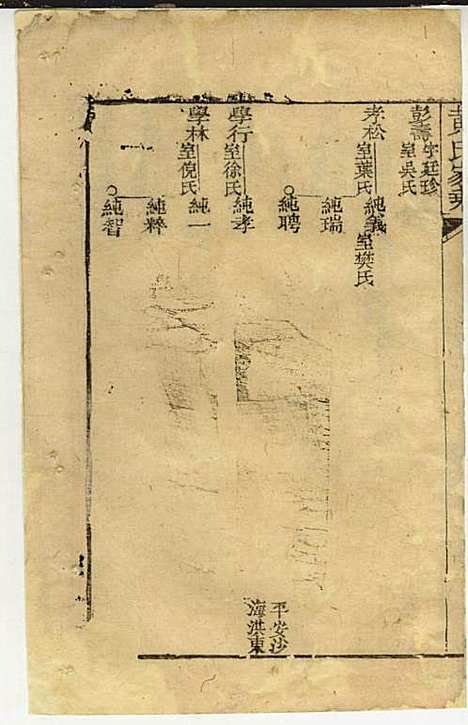 氏家
彭壽字廷珍
室吳氏
孝松室葉氏
純義室樊氏
純瑞
純聘
學行室徐氏
純孝
學林室倪氏
純一
純粹
純智
平安沙
海洪東